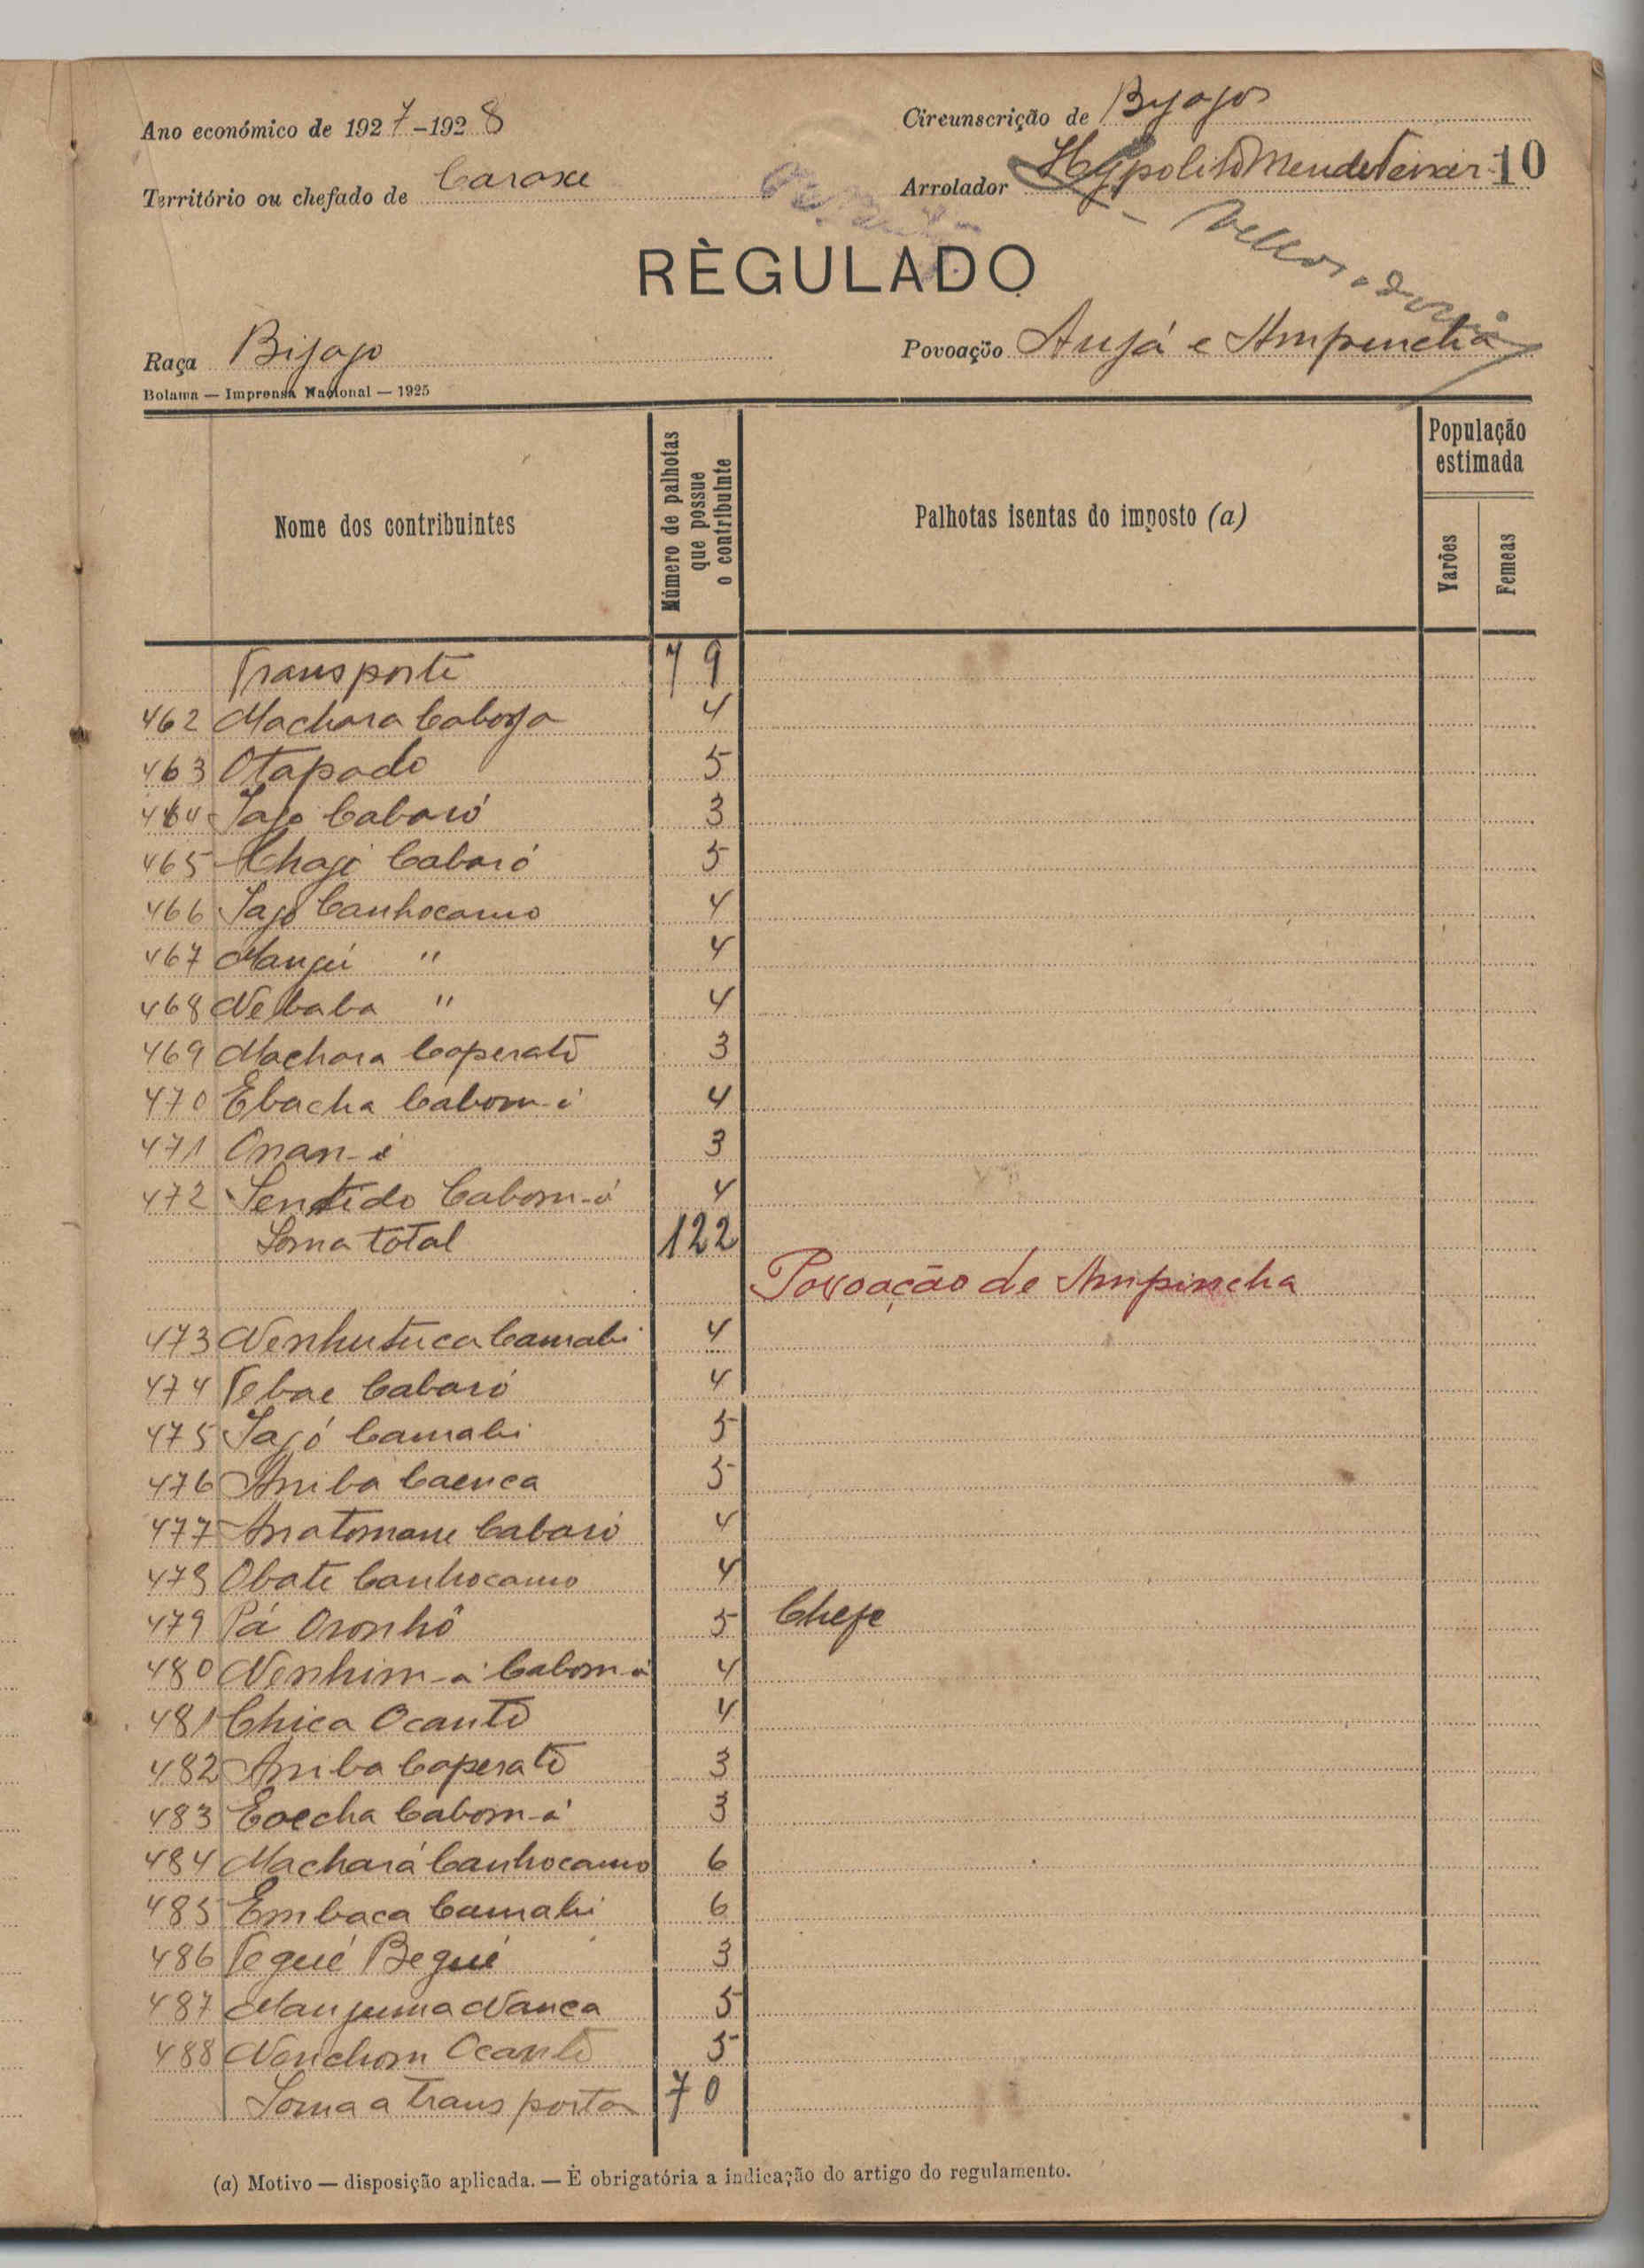 Ano económico de 1927-1928
Circunscrição de Byagos
Território ou chefado de Caraxe
Arrolador Hypolito Mendes Teixeira 10
RÈGULADO
Raça Bijago
Povoação Anjá e Ampincha
Bolama — Imprensa Nacional — 1925
Nome dos contribuintes
Número de palhotas que possue o contribuinte
Palhotas isentas do imposto (a)
População estimada
Varões
Femeas
Transporte 79
462 Machara 4
463 Otapado 5
464 Jajo Cabaró 3
465 Chaji Cabaró 5
466 Jajo Canhocamo 4
467 Manjui " 4
468 Nebaba " 4
469 Machara Caperatô 3
470 Ebacha Cabom-i 4
471 Onan-i 3
472 Sentido Cabom-á 4
Soma total 122
Povoação de Ampincha
473 Nenhutuca Camabi 4
474 Tebae Cabaró 4
475 Jajó Camabi 5
476 Aniba Caenca 5
477 Anatomane Cabaró 4
478 Obate Canhocamo 4
479 Pá Oronhô 5 Chefe
480 Nenhim-á Cabom-á 4
481 Chica Ocantô 4
482 Aniba Caperatô 3
483 Eoecha Cabom-á 3
484 Machará Canhocamo 6
485 Embaca Camabi 6
486 Tegué Begué 3
487 Manjuma Nanca 5
488 Nenchom Ocantô 5
Soma a transportar 70
(a) Motivo — disposição aplicada. — É obrigatória a indicação do artigo do regulamento.